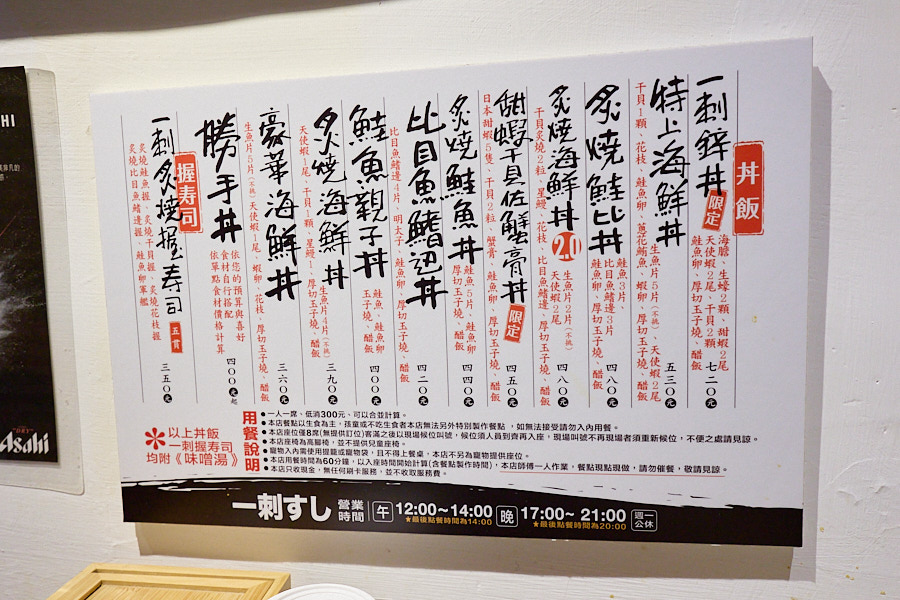 丼飯
一刺鋅丼
限定
海膽、生蠔2顆、甜蝦2尾
天使蝦2尾、干貝2顆
鮭魚卵、厚切玉子燒、醋飯
七二〇元
特上海鮮丼
生魚片5片(不挑)、天使蝦2尾
干貝1顆、花枝、鮭魚卵、蔥花鮪魚、蝦卵、厚切玉子燒、醋飯
五三〇元
炙燒鮭比丼
鮭魚3片、
比目魚鰭邊3片
鮭魚卵、厚切玉子燒、醋飯
四八〇元
炙燒海鮮丼2.0
生魚片2片(不挑)
天使蝦2尾
干貝炙燒2粒、星鰻、花枝、比目魚鰭邊、厚切玉子燒、醋飯
四八〇元
甜蝦干貝佐蟹膏丼
限定
日本甜蝦5隻、干貝2粒、蟹膏、鮭魚卵、厚切玉子燒、醋飯
四五〇元
炙燒鮭魚丼
鮭魚5片、鮭魚卵
厚切玉子燒、醋飯
四四〇元
比目魚鰭邊丼
比目魚鰭邊4片、明太子、鮭魚卵、厚切玉子燒、醋飯
四二〇元
鮭魚親子丼
鮭魚、鮭魚卵
厚切玉子燒、醋飯
四〇〇元
炙燒海鮮丼
生魚片4片(不挑)
天使蝦1尾、干貝1顆、星鰻1、厚切玉子燒、醋飯
三九〇元
豪華海鮮丼
生魚片5片(不挑)天使蝦1尾、蝦卵、花枝、厚切玉子燒、醋飯
三六〇元
勝手丼
依您的預算與喜好
食材自行搭配
依單點食材價格計算
四〇〇元起
握壽司
一刺炙燒握壽司
五貫
炙燒鮭魚握、炙燒干貝握、炙燒花枝握
炙燒比目魚鰭邊握、鮭魚卵軍艦
三五〇元
*以上丼飯
一刺握壽司
均附《味噌湯》
用餐說明
●一人一席、低消300元、可以合並計算。
●本店餐點以生食為主,孩童或不吃生食者本店無法另外特別製作餐點,如無法接受請勿入內用餐。
●本店座位僅8席(無提供訂位)客滿之後以現場候位叫號,候位須人員到齊再入座,現場叫號不再現場者須重新候位,不便之處請見諒。
●本店座椅為高腳椅,並不提供兒童座椅。
●寵物入內需使用提籠或寵物袋,且不得上餐桌,本店不另為寵物提供座位。
●本店用餐時間為60分鐘,以入座時間開始計算(含餐點製作時間),本店師傅一人作業,餐點現點現做,請勿催餐,敬請見諒。
●本店只收現金,無任何刷卡服務,並不收取服務費。
一刺すし
營業時間
午
12:00~14:00
★最後點餐時間為14:00
晚
17:00~21:00
★最後點餐時間為20:00
週一公休
HI
Asahi